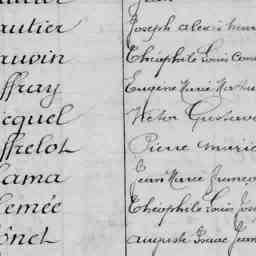 autier Joseph Alexis Henri
auvin Théophile Louis
ffray Eugène Marie
equel Victor Gustave
ffrelot Pierre Marie
lama Jean Marie François
lemée Théophile Louis
ônet Auguste Isaac Jean